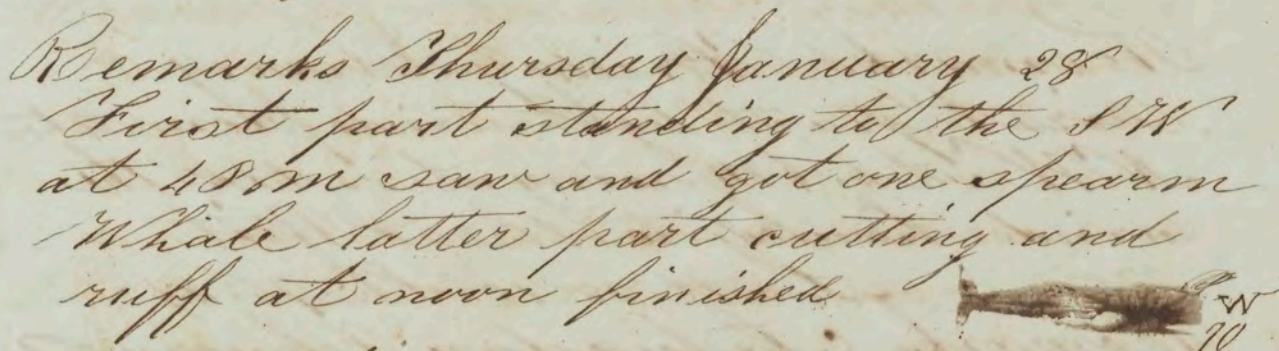 Remarks Thursday January 28
First part standing to the S W
at 4 P m saw and got one spearm
Whale latter part cutting and
ruff at noon finished
W
70